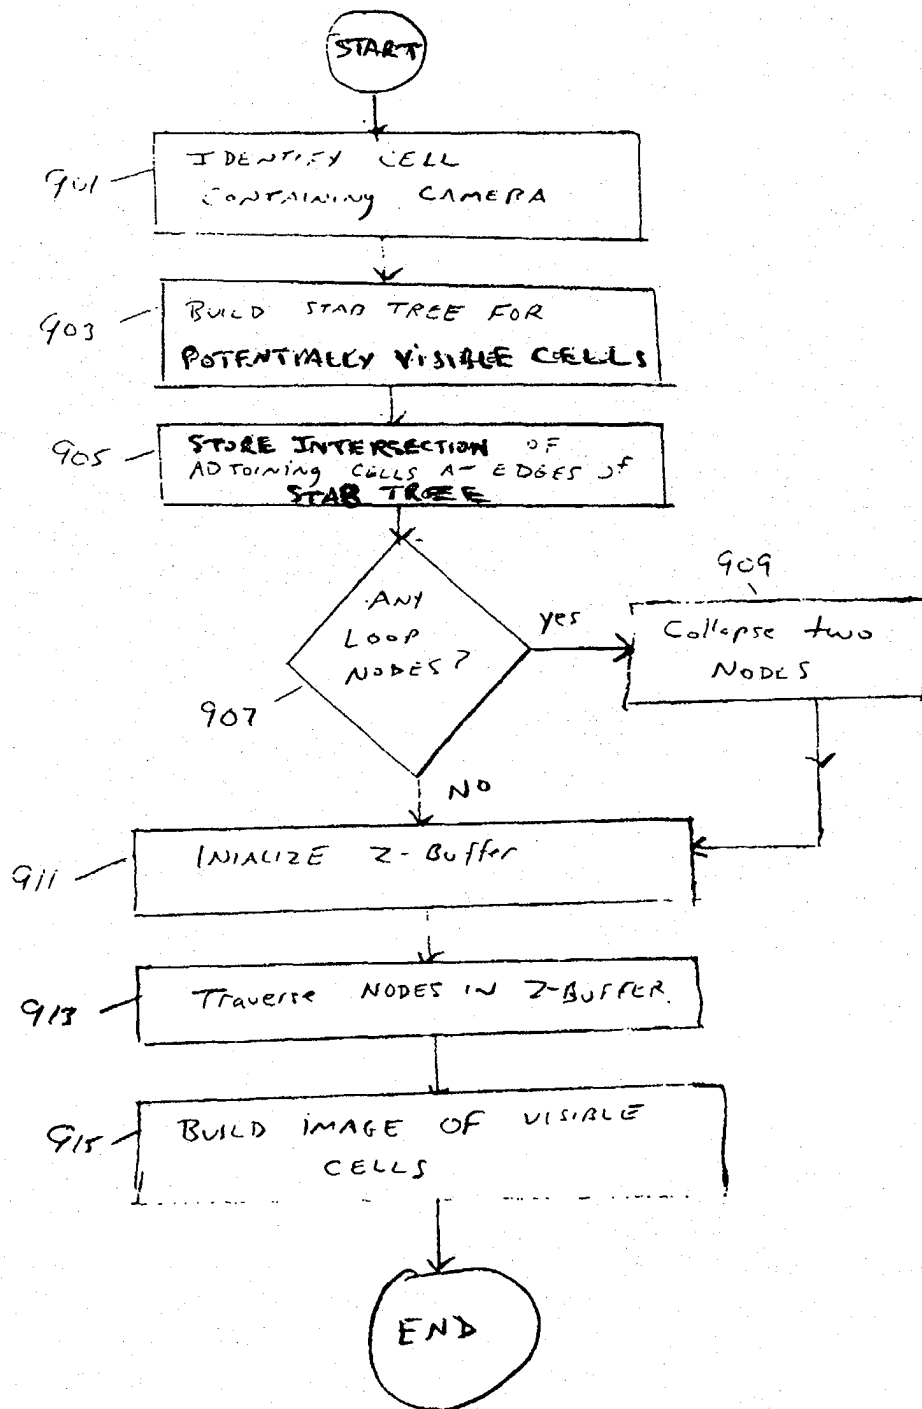 START
901
IDENTIFY CELL
CONTAINING CAMERA
903
BUILD STAB TREE FOR
POTENTIALLY VISIBLE CELLS
905
STORE INTERSECTION OF
ADJOINING CELLS AT EDGES OF
STAB TREE
907
ANY
LOOP
NODES?
yes
909
Collapse two
NODES
NO
911
INIALIZE Z-Buffer
913
Traverse NODES IN Z-BUFFER.
915
BUILD IMAGE OF VISIBLE
CELLS
END